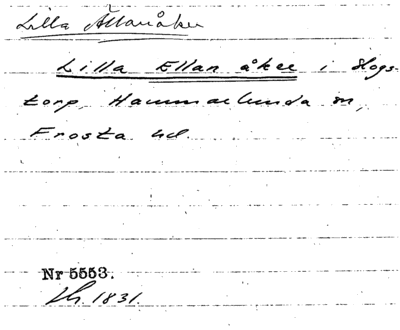 Lilla Ällanåker
Lilla Ellan åker i Hogs-
torp, Hammarlunda sn,
Frosta hd.
Nr 5553.
1831.